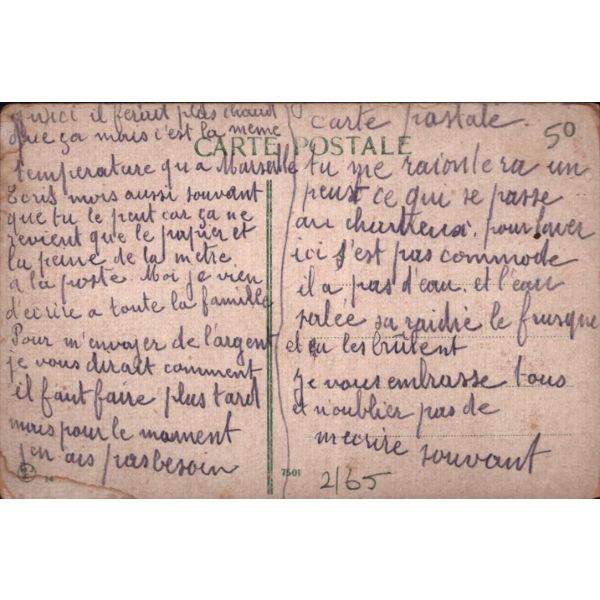 qu'ici il ferait plus chaud
que ça mais c'est la même
température qu'a Marseille
Ecris mois aussi souvant
que tu le peut car ça ne
revient que le papier et
la peine de la mètre
a la poste. Moi je vien
d'écrire a toute la famille
Pour m'envoyer de l'argent
je vous dirait comment
il faut faire plus tard
mais pour le moment
j'en ais pas besoin
CARTE POSTALE
carte postale.
50
tu me raconlera un
peut ce qui se passe
au chartreux. pour laver
ici s'est pas commode
il a pas d'eau. et l'eau
salée sa raidie le frusque
et ça les brûlent
je vous embrasse tous
et n'oublier pas de
mecrire souvant
7501
2/65